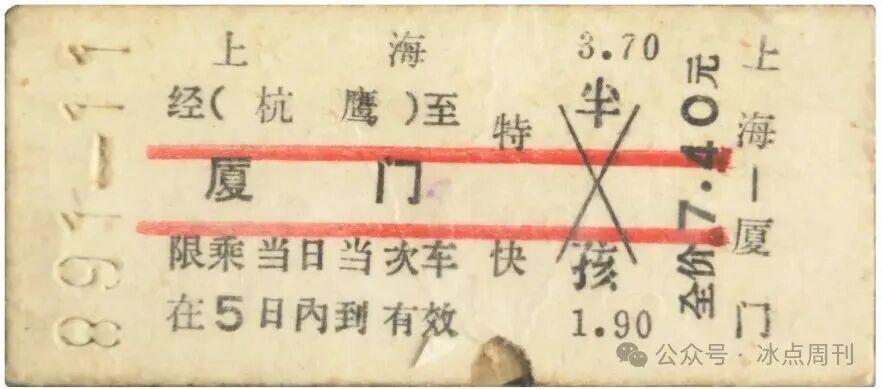 891-11
上海
经(杭鹰)至
厦门
限乘当日当次车
在5日内到有效
特
快
3.70
半
孩
1.90
全价7.40元
上海—厦门
公众号·冰点周刊